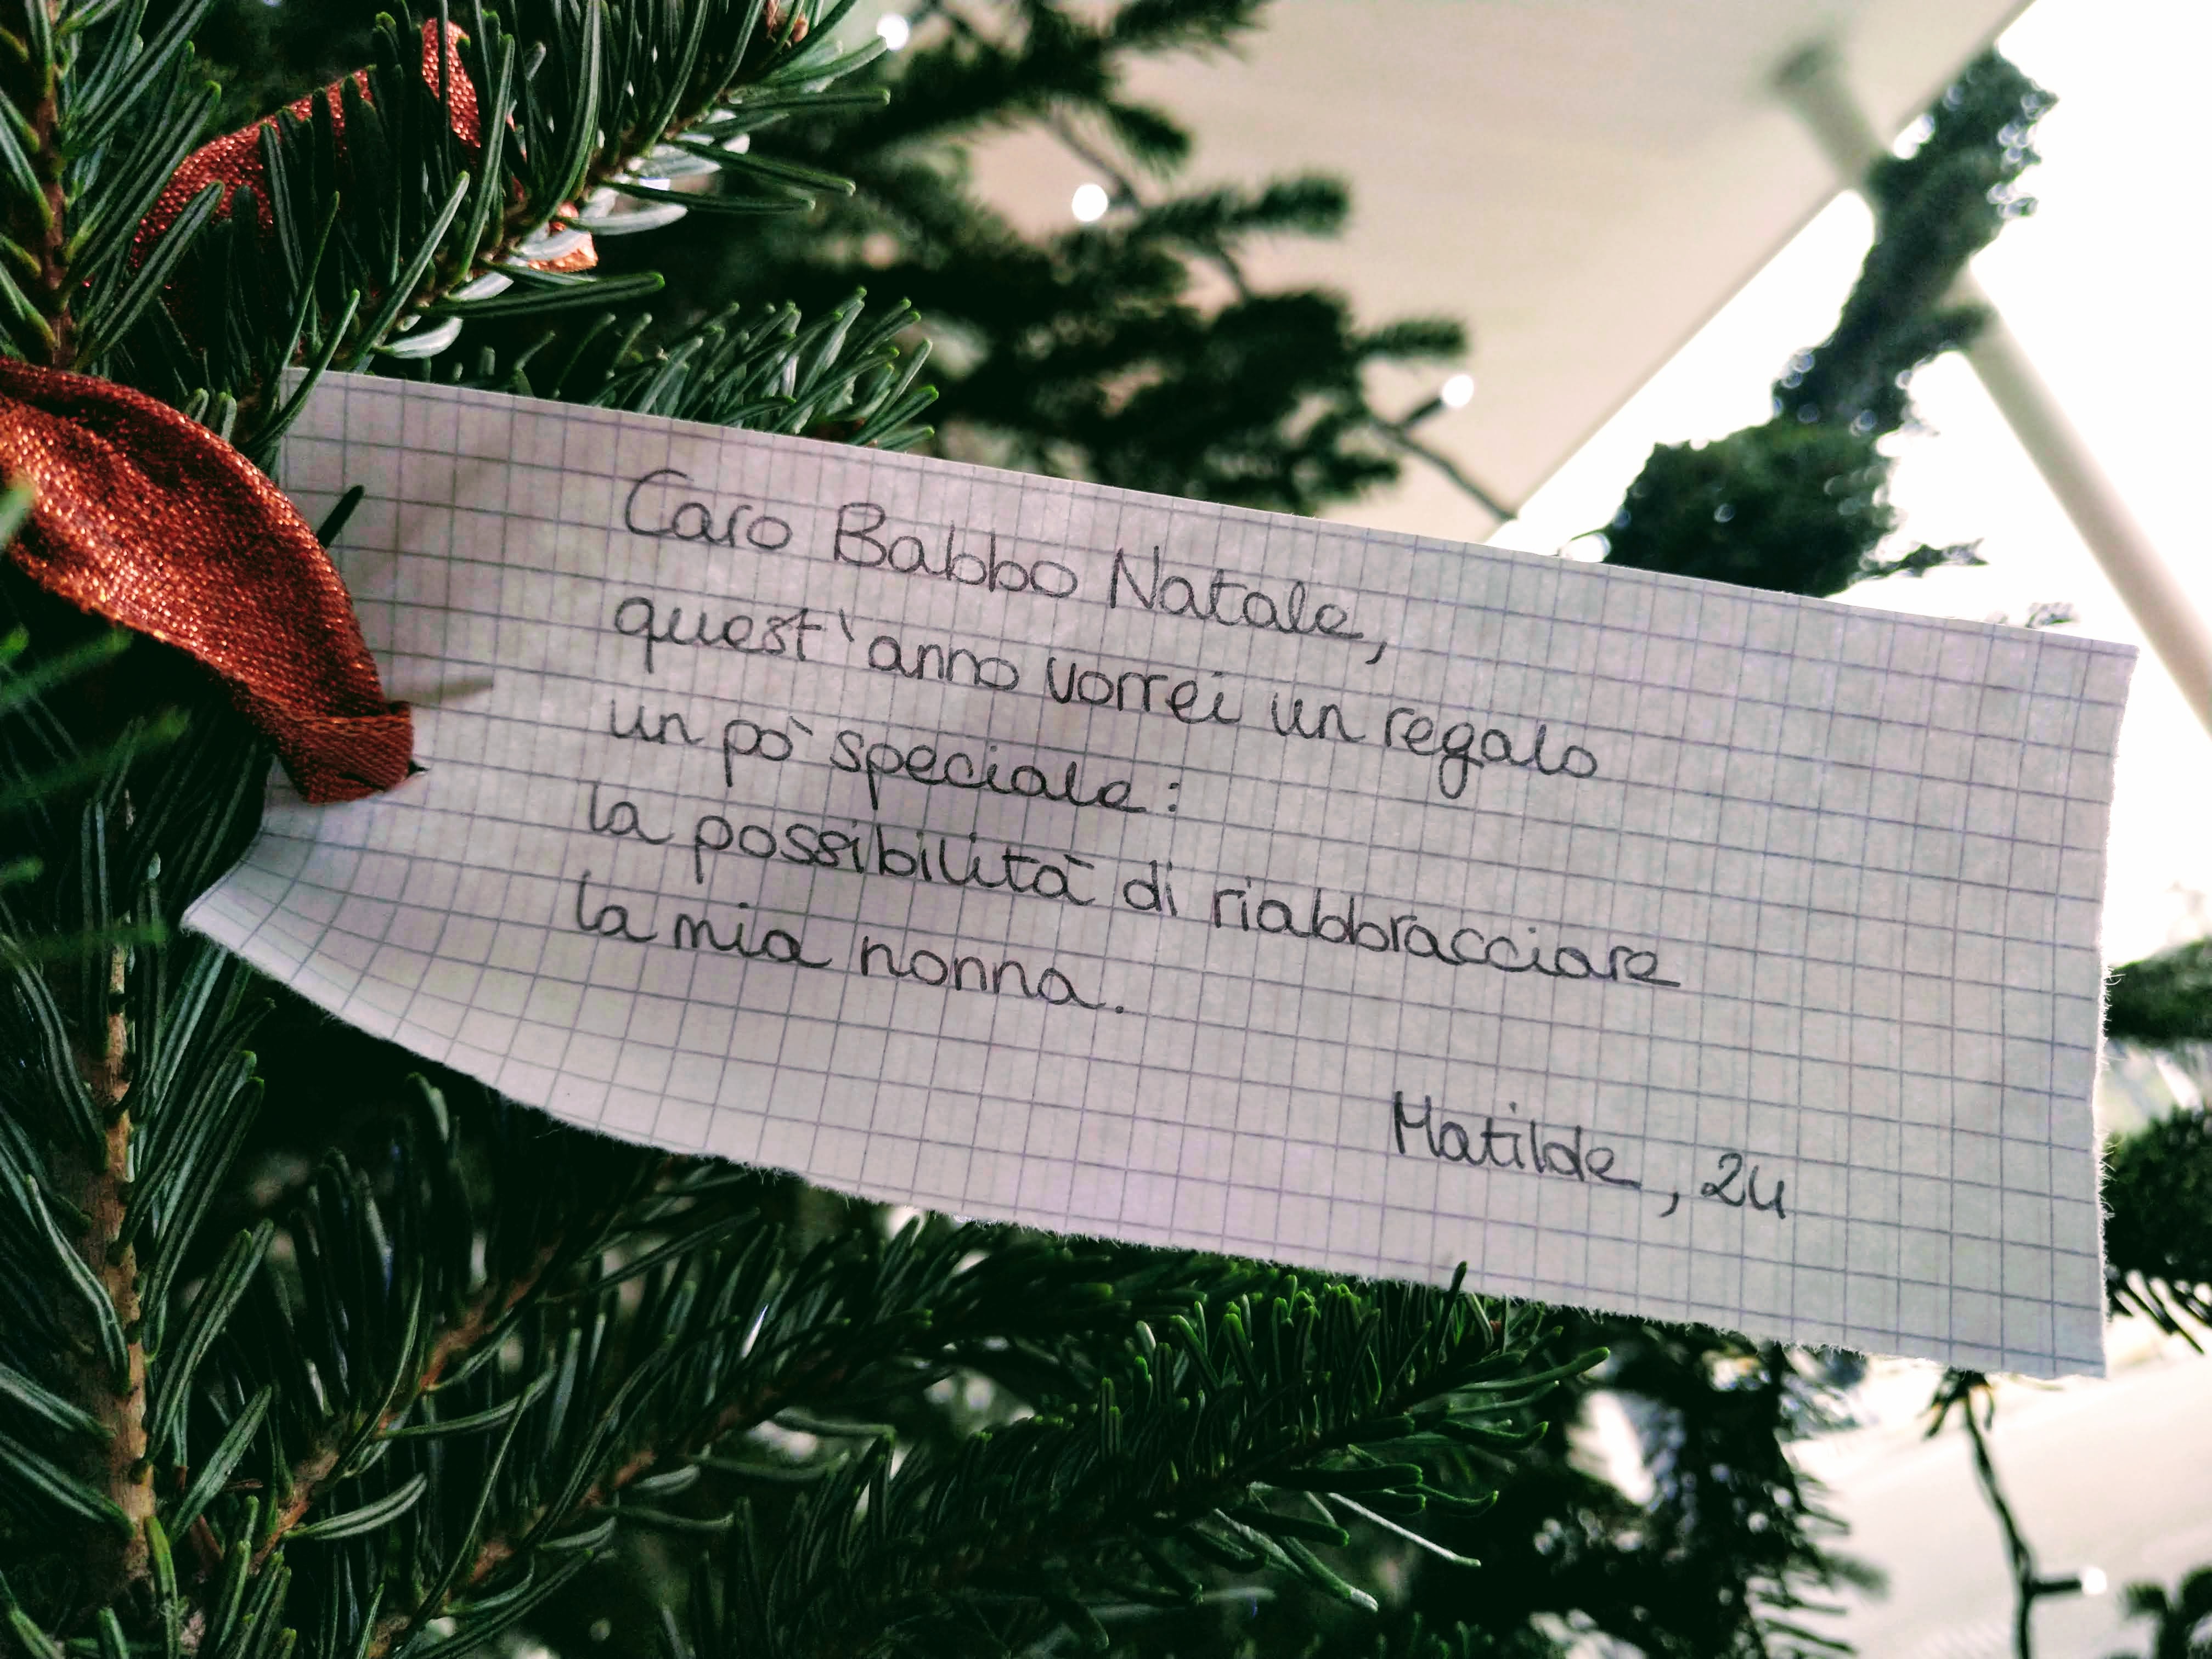 Caro Babbo Natale,
quest'anno vorrei un regalo
un pò speciale:
la possibilità di riabbracciare
la mia nonna.
Matilde, 24